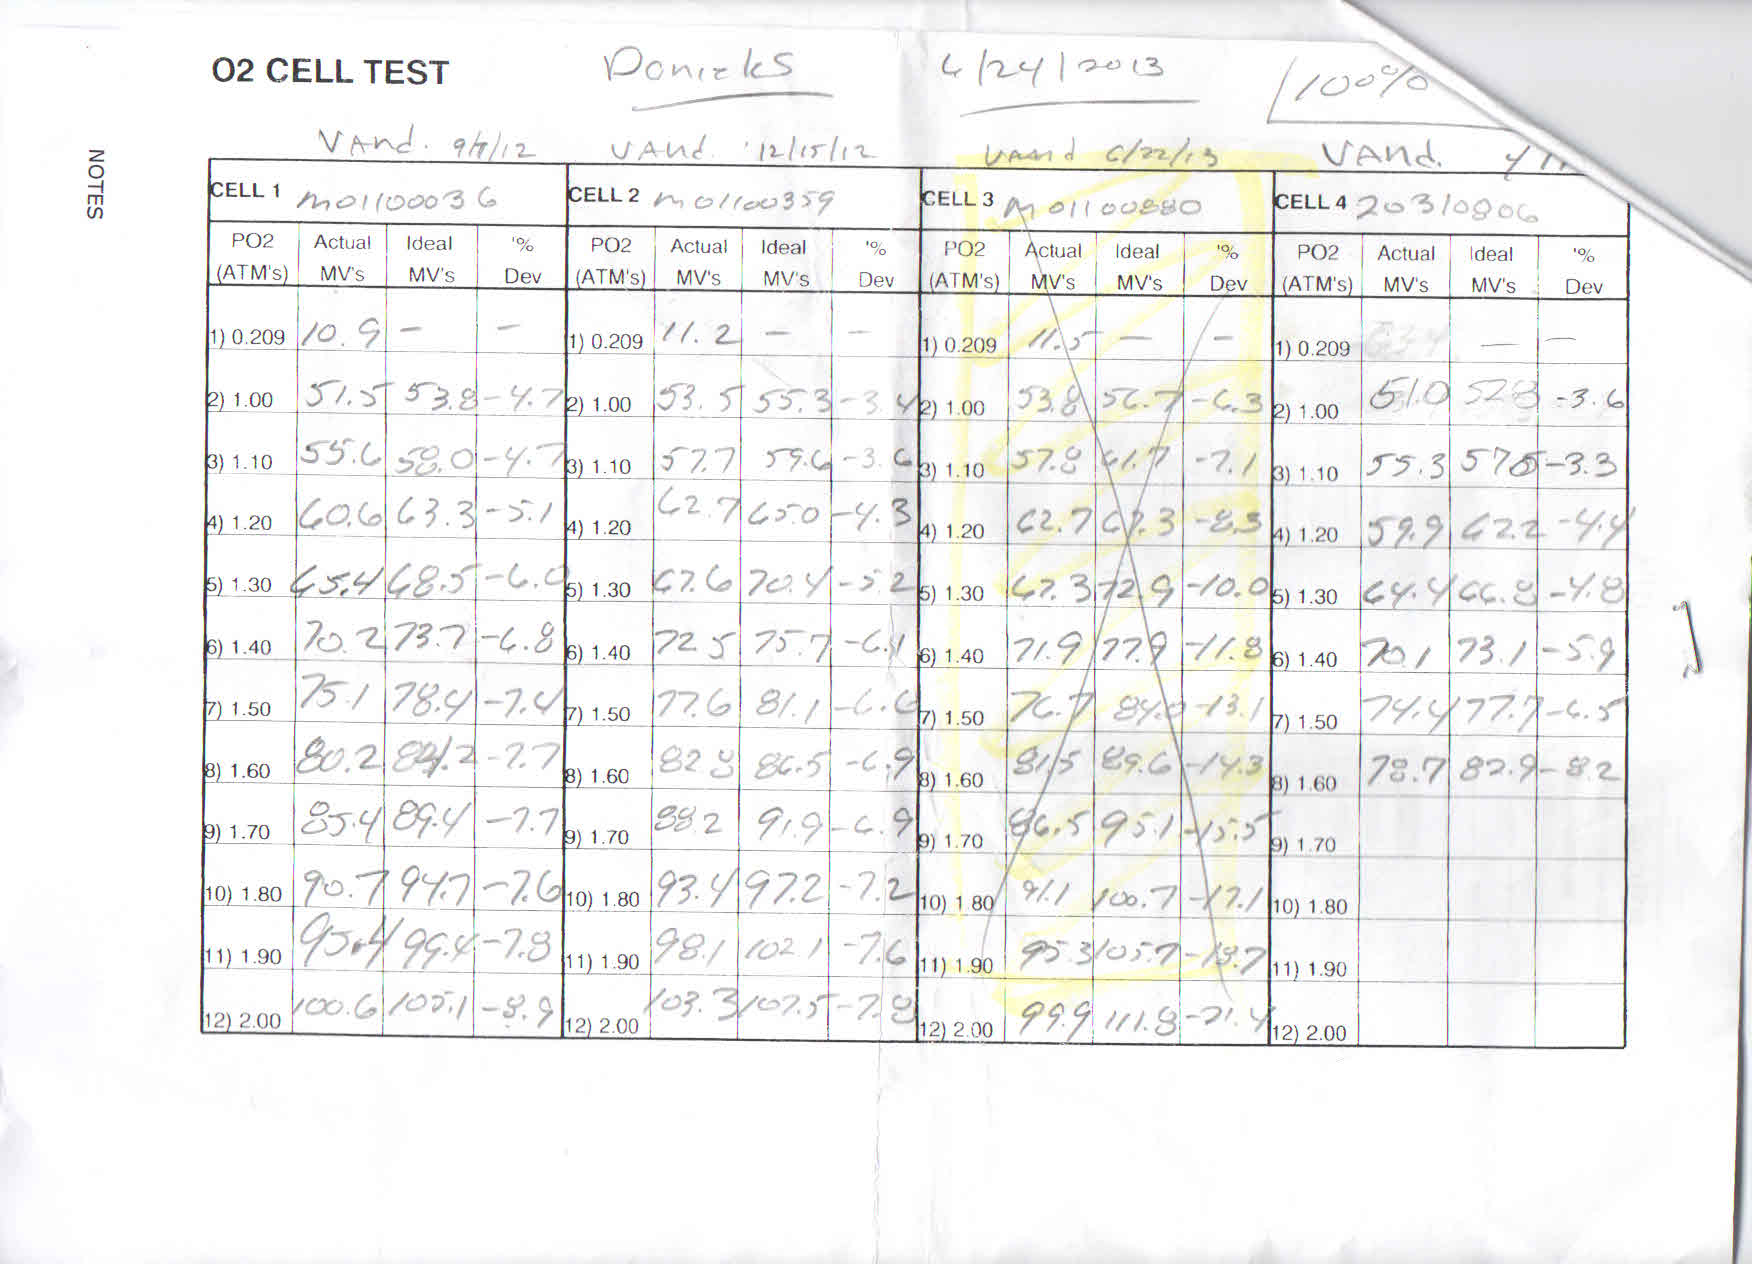 O2 CELL TEST Donicks 6/24/2013 100%
NOTES
VAnd. 9/7/12 VAnd. 12/15/12 VAnd 6/22/13 VAnd.
CELL 1 M01100036 CELL 2 M01100359 CELL 3 M01100880 CELL 4 20310806
PO2 Actual Ideal '% PO2 Actual Ideal '% PO2 Actual Ideal '% PO2 Actual Ideal '%
(ATM's) MV's MV's Dev (ATM's) MV's MV's Dev (ATM's) MV's MV's Dev (ATM's) MV's MV's Dev
1) 0.209 10.9 — — 1) 0.209 11.2 — — 1) 0.209 11.5 — — 1) 0.209 — —
2) 1.00 51.5 53.8 -4.7 2) 1.00 53.5 55.3 -3.4 2) 1.00 53.8 56.7 -6.3 2) 1.00 51.0 52.8 -3.6
3) 1.10 55.6 58.0 -4.7 3) 1.10 57.7 59.6 -3.6 3) 1.10 57.8 61.7 -7.1 3) 1.10 55.3 57.5 -3.3
4) 1.20 60.6 63.3 -5.1 4) 1.20 62.7 65.0 -4.3 4) 1.20 62.7 67.3 -8.3 4) 1.20 59.9 62.2 -4.4
5) 1.30 65.4 68.5 -6.0 5) 1.30 67.6 70.4 -5.2 5) 1.30 67.3 72.9 -10.0 5) 1.30 64.4 66.8 -4.8
6) 1.40 70.2 73.7 -6.8 6) 1.40 72.5 75.7 -6.1 6) 1.40 71.9 77.9 -11.8 6) 1.40 70.1 73.1 -5.9
7) 1.50 75.1 78.4 -7.4 7) 1.50 77.6 81.1 -6.6 7) 1.50 76.7 84.0 -13.1 7) 1.50 74.4 77.7 -6.5
8) 1.60 80.2 84.2 -7.7 8) 1.60 82.8 86.5 -6.9 8) 1.60 81.5 89.6 -14.3 8) 1.60 78.7 82.9 -8.2
9) 1.70 85.4 89.4 -7.7 9) 1.70 88.2 91.9 -6.9 9) 1.70 86.5 95.1 -15.5 9) 1.70
10) 1.80 90.7 94.7 -7.6 10) 1.80 93.4 97.2 -7.2 10) 1.80 91.1 100.7 -17.1 10) 1.80
11) 1.90 95.4 99.4 -7.8 11) 1.90 98.1 102.1 -7.6 11) 1.90 95.3 105.7 -18.7 11) 1.90
12) 2.00 100.6 105.1 -8.9 12) 2.00 103.3 107.5 -7.8 12) 2.00 99.9 111.8 -21.4 12) 2.00